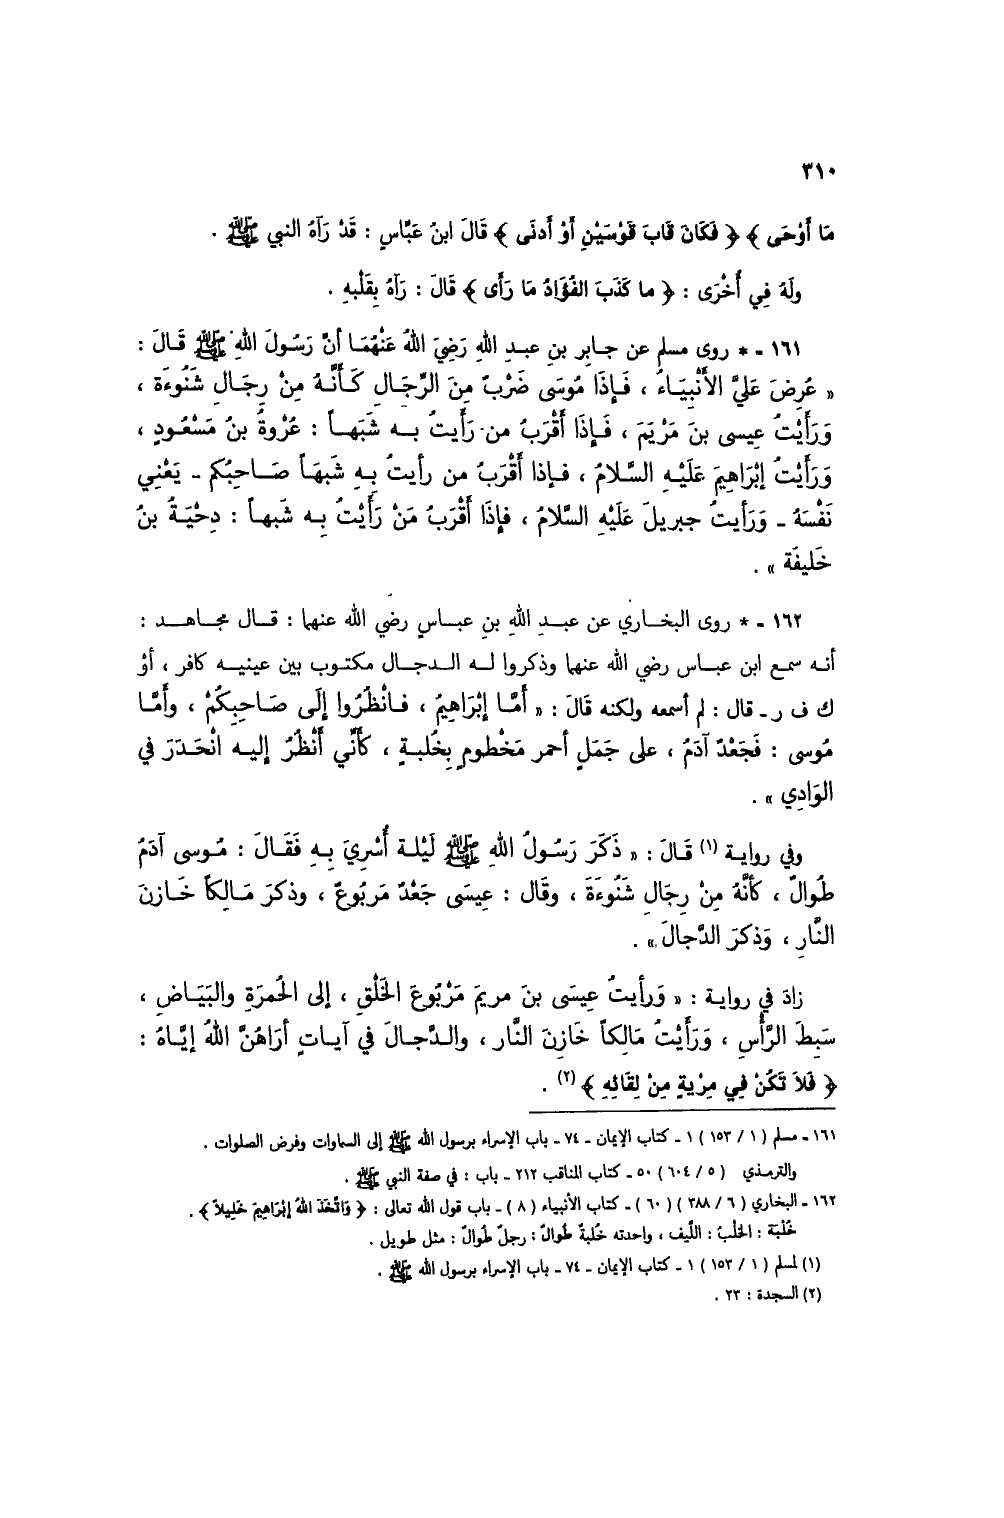 ٣١٠
مَا أَوْحَى ﴾ ﴿ فَكَانَ قَابَ قَوْسَيْنِ أَوْ أَدنَى ﴾ قَالَ ابنُ عَبَّاسٍ : قَدْ رَآهُ النبي ﷺ .
ولَهُ فِي أُخْرَى : ﴿ ما كَذَبَ الفُؤَادُ مَا رَأى ﴾ قَالَ : رَآهُ بِقَلْبِهِ .
١٦١ - * روى مسلم عن جـابِر بنِ عبـدِ اللهِ رَضِيَ اللهُ عَنْهُمَـا أنَّ رَسُولَ اللهِ ﷺ قَـالَ :
« عُرِضَ عَليَّ الأَنْبِيَـاءُ ، فَـإذَا مُوسَى ضَرْبٌ مِنَ الرِّجَالِ كَـأَنَّـهُ مِنْ رِجَالِ شَنُوءَة ،
وَرَأَيْتُ عِيسى بنَ مَرْيَمَ ، فَـإذَا أَقْرَبُ من رَأَيتُ بـه شَبَهـاً : عُرْوةُ بنُ مَسْعُـودٍ ،
وَرَأَيْتُ إبْرَاهِيمَ عَلَيْـهِ السَّلامُ ، فـإذا أَقْرَبُ من رأيتُ بِـهِ شَبهَـاً صَـاحِبُكم - يَعْنِي
نَفْسَهُ - وَرَأيتُ جبريلَ عَلَيْهِ السَّلامُ ، فإذَا أَقْرَبُ مَنْ رَأَيْتُ بِـه شَبهـاً : دِحْيَـةُ بنُ
خَلِيفَة » .
١٦٢ - * روى البخـاري عن عبـدِ اللهِ بنِ عبـاسٍ رضي الله عنهما : قـال مجـاهـد :
أنـه سمـع ابن عبـاس رضي الله عنهما وذكروا لـه الـدجـال مكتـوب بين عينيـه كافر ، أوْ
ك ف ر - قال : لم أسمعه ولكنه قَالَ : « أَمَّـا إبْرَاهِيمُ ، فَـانْظُرُوا إلَى صَـاحِبِكُمْ ، وأمَّـا
مُوسى : فَجَعْدٌ آدَمُ ، على جَمَلٍ أحمر مَخْطومٍ بِخُلبـةٍ ، كَأَنِّي أَنْظُرُ إليـه انْحَدَرَ في
الوَادِي » .
وفي روايـة (١) قَـالَ : « ذَكَرَ رَسُـولُ اللهِ ﷺ لَيْلـة أُسْرِيَ بِـهِ فَقَـالَ : مُـوسى آدَمُ
طُوالٌ ، كأنَّهُ مِنْ رِجَالِ شَنُوءَةَ ، وقَال : عِيسَى جَعْدٌ مَربُوعٌ ، وذكرَ مَـالِكاً خَـازنَ
النَّارِ ، وَذكرَ الدَّجالَ » .
زادَ فِي روايـة : « وَرأيتُ عِيسَى بنَ مريمَ مَرْبُوعَ الخَلْقِ ، إلى الحُمرَةِ والبَيَـاضِ ،
سَبِطَ الرَّأْسِ ، وَرَأَيْتُ مَالِكاً خَازِنَ النَّارِ ، والـدَّجـالَ في آيـاتٍ أرَاهُنَّ اللهُ إيَّـاهُ :
﴿ فَلاَ تَكُنْ فِي مِرْيةٍ مِنْ لِقَائِهِ ﴾ (٢) .
١٦١ - مسلم ( ١ / ١٥٣ ) ١ - كتاب الإيمان - ٧٤ - باب الإسراء برسول الله ﷺ إلى السماوات وفرض الصلوات .
والترمـذي ( ٥ / ٦٠٤ ) ٥٠ - كتاب المناقب ٢١٢ - باب : في صفة النبي ﷺ .
١٦٢ - البخاري ( ٦ / ٣٨٨ ) ( ٦٠ ) - كتاب الأنبياء ( ٨ ) - باب قول الله تعالى : ﴿ وَاتَّخَذَ اللهُ إبْرَاهِيمَ خَلِيلاً ﴾ .
خُلْبَة : الخلْبُ : اللِّيف ، واحدته خُلبةٌ طُوالٌ : رجلٌ طُوالٌ : مثل طويل .
(١) لمسلم ( ١ / ١٥٣ ) ١ - كتاب الإيمان - ٧٤ - باب الإسراء برسول الله ﷺ .
(٢) السجدة : ٢٣ .